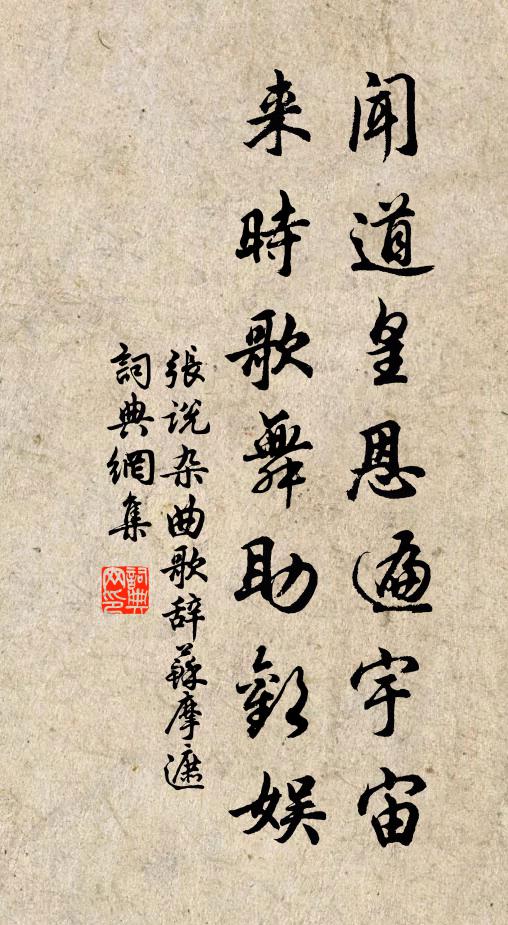 闻道皇恩遍宇宙
来時歌舞助歡娱
張说杂曲歌辞蘇摩遮
詞典網集
詞典
网印